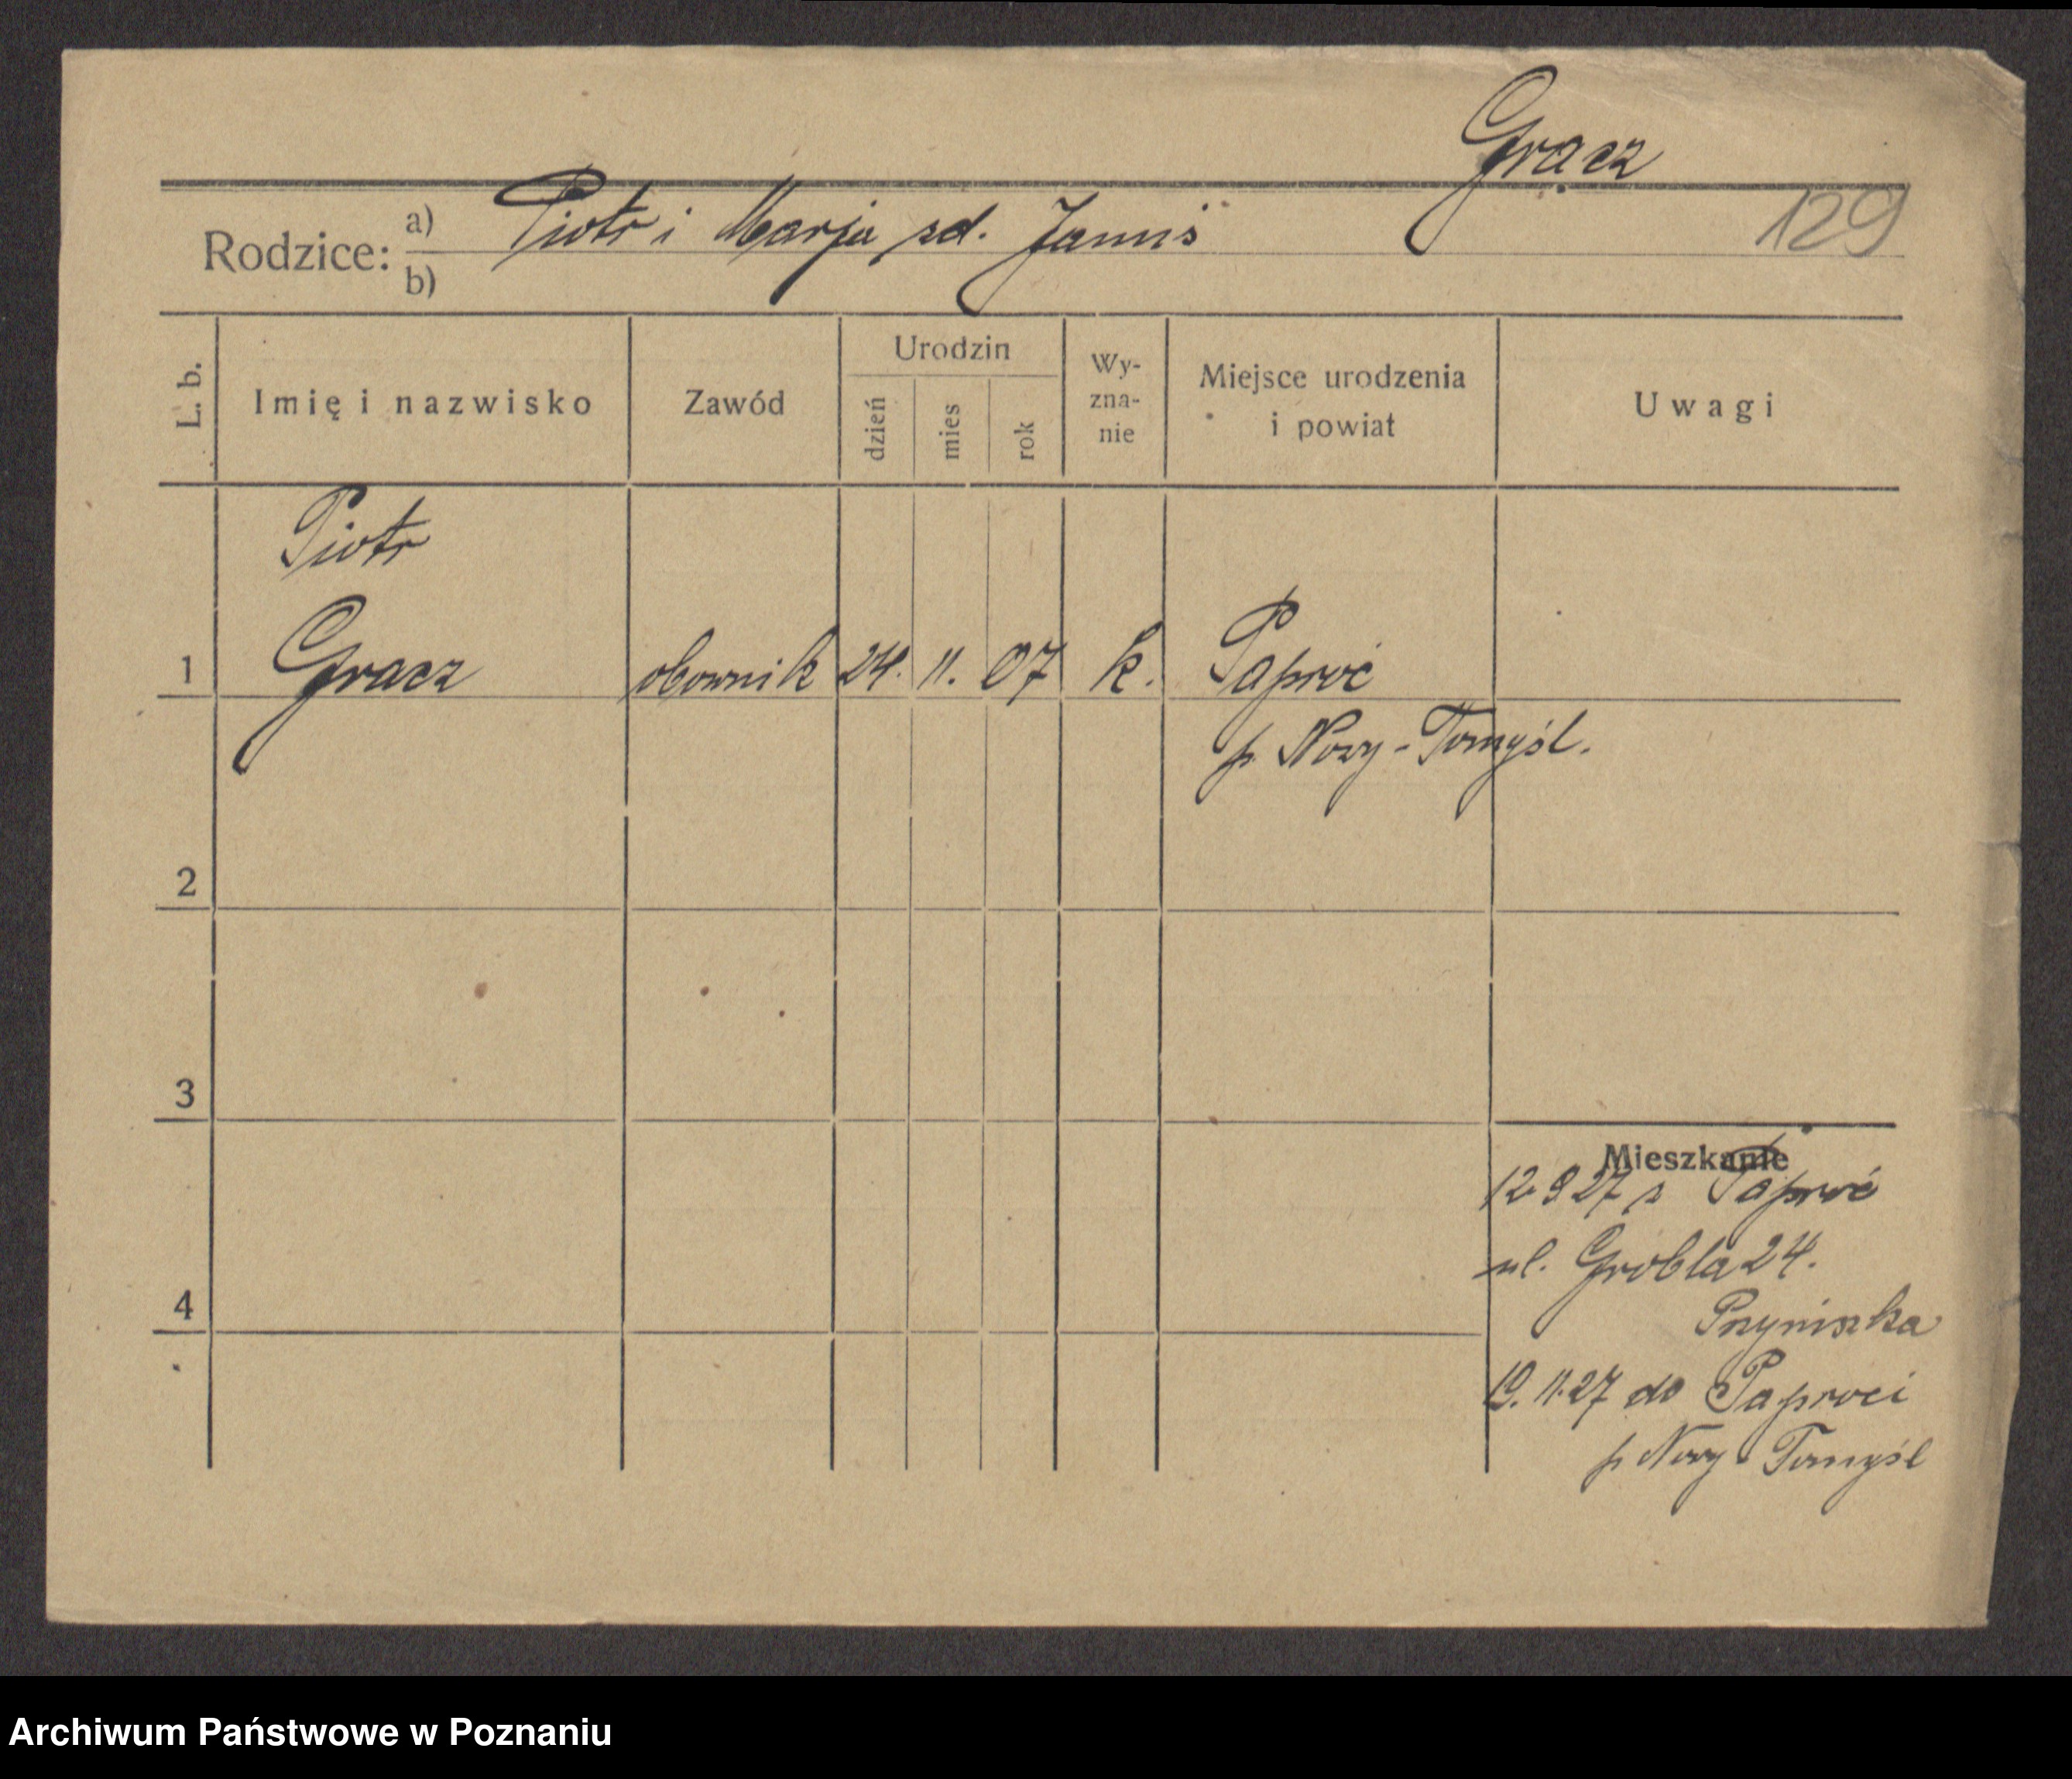 Gracz
129
Rodzice: a) Piotr i Marja zd. Jannis
b)
L. b. Imię i nazwisko Zawód Urodzin dzień mies rok Wy-zna-nie Miejsce urodzenia i powiat Uwagi
Piotr
1 Gracz 24. 11. 07 k. Paproć
p. Nowy-Tomyśl.
2
3
Mieszkanie
12 9 27 z Paproć
ul. Grobla 24.
4
19. 11. 27 do Paproci
p Nowy Tomyśl
Archiwum Państwowe w Poznaniu